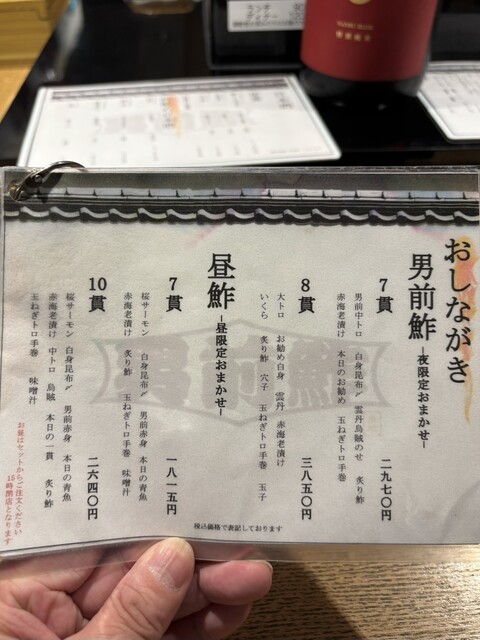 おしながき
男前鮓 ー夜限定おまかせー
7貫
男前中トロ 白身昆布〆 雲丹烏賊のせ 炙り鮓
赤海老漬け 本日のお勧め 玉ねぎトロ手巻
二九七〇円
8貫
大トロ お勧め白身 雲丹 赤海老漬け
いくら 炙り鮓 穴子 玉ねぎトロ手巻 玉子
三八五〇円
昼鮓 ー昼限定おまかせー
7貫
桜サーモン 白身昆布〆 男前赤身 本日の青魚
赤海老漬け 炙り鮓 玉ねぎトロ手巻 味噌汁
一八一五円
10貫
桜サーモン 白身昆布〆 男前赤身 本日の青魚
赤海老漬け 中トロ 烏賊 本日の一貫 炙り鮓
玉ねぎトロ手巻 味噌汁
二六四〇円
お昼はセットからご注文ください
15時閉店となります
税込価格で表記しております
ランチ
ディナー